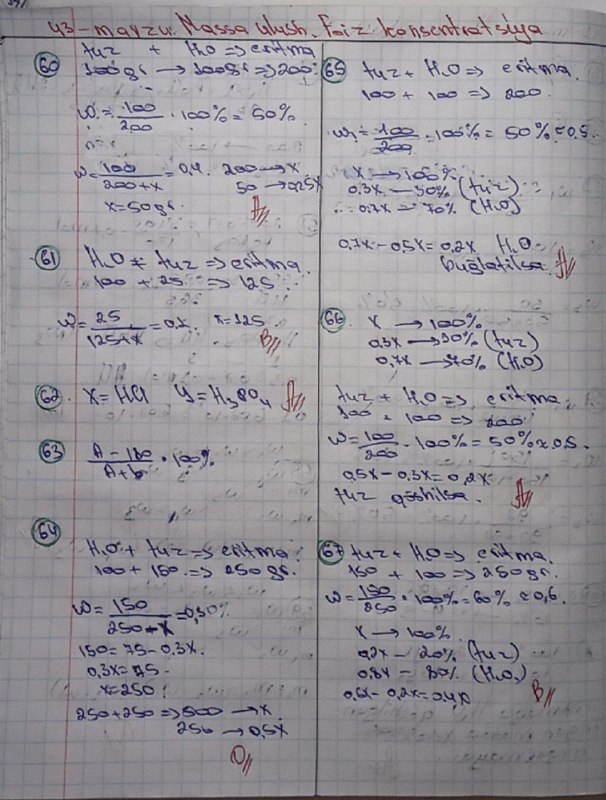 43-mavzu. Massa ulush. Foiz konsentratsiya
60
tuz + H₂O => eritma
100gr → 100gr => 200
W = 100/200 · 100% = 50%
W = 100/200+x = 0,4 200 → x
50 → 0,25x
x = 50gr. A//
61
H₂O + tuz => eritma
100 + 25 => 125
W = 25/125+x = 0,1 x=125
B//
62 X=HCl Y=H₃PO₄ A//
63
· 100%
64
H₂O + tuz => eritma
100 + 150 => 250gr.
W = 150/250+x = 0,30%
150 = 75 - 0,3x
0,3x = 75
x = 250
250+250 => 500 → x
250 → 0,5x
D//
65 tuz + H₂O => eritma
100 + 100 => 200
W = 100/200 · 100% = 50% ≈ 0,5
x → 100%
0,3x — 30% (tuz)
0,7x — 70% (H₂O)
0,7x - 0,5x = 0,2x H₂O
bug'latilsa A//
66
x → 100%
0,3x → 30% (tuz)
0,7x → 70% (H₂O)
tuz + H₂O => eritma
100 + 100 => 200
W = 100/200 · 100% = 50% ≈ 0,5
0,5x - 0,3x = 0,2x
tuz qo'shilsa. A//
67 tuz + H₂O => eritma
150 + 100 => 250gr.
W = 150/250 · 100% = 60% ≈ 0,6
x → 100%
0,2x — 20% (tuz)
0,8x — 80% (H₂O)
0,6x - 0,2x = 0,4x B//